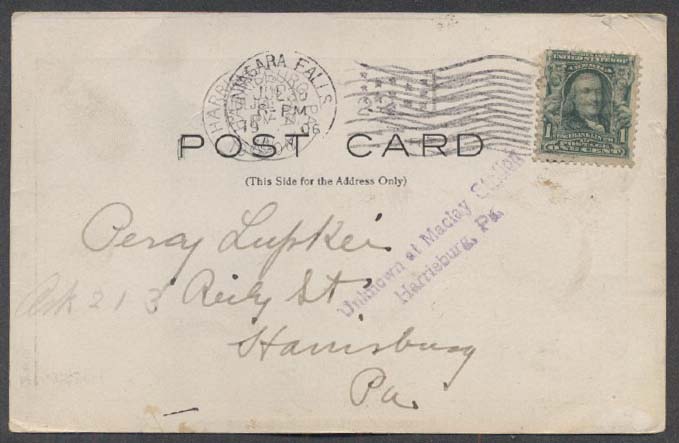 NIAGARA FALLS
HARRISBURG
PA.
PM
19 06
UNITED STATES OF AMERICA
1 FRANKLIN 1
POSTAGE
ONE CENT
POST CARD
(This Side for the Address Only)
Unknown at Maclay Station
Harrisburg, Pa.
Percy
Ask 213 Reily St.
Harrisburg
Pa.